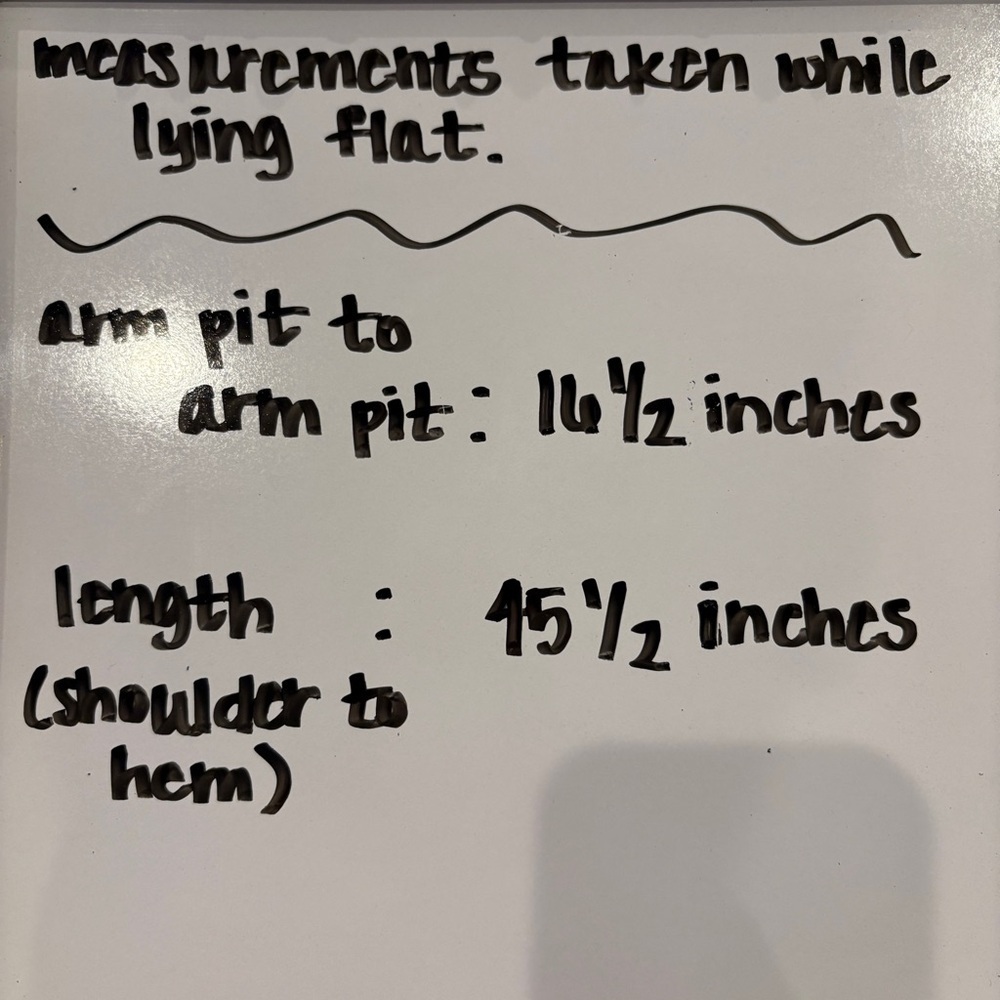 measurements taken while
lying flat.
arm pit to
arm pit: 16 1/2 inches
length : 45 1/2 inches
(shoulder to
hem)